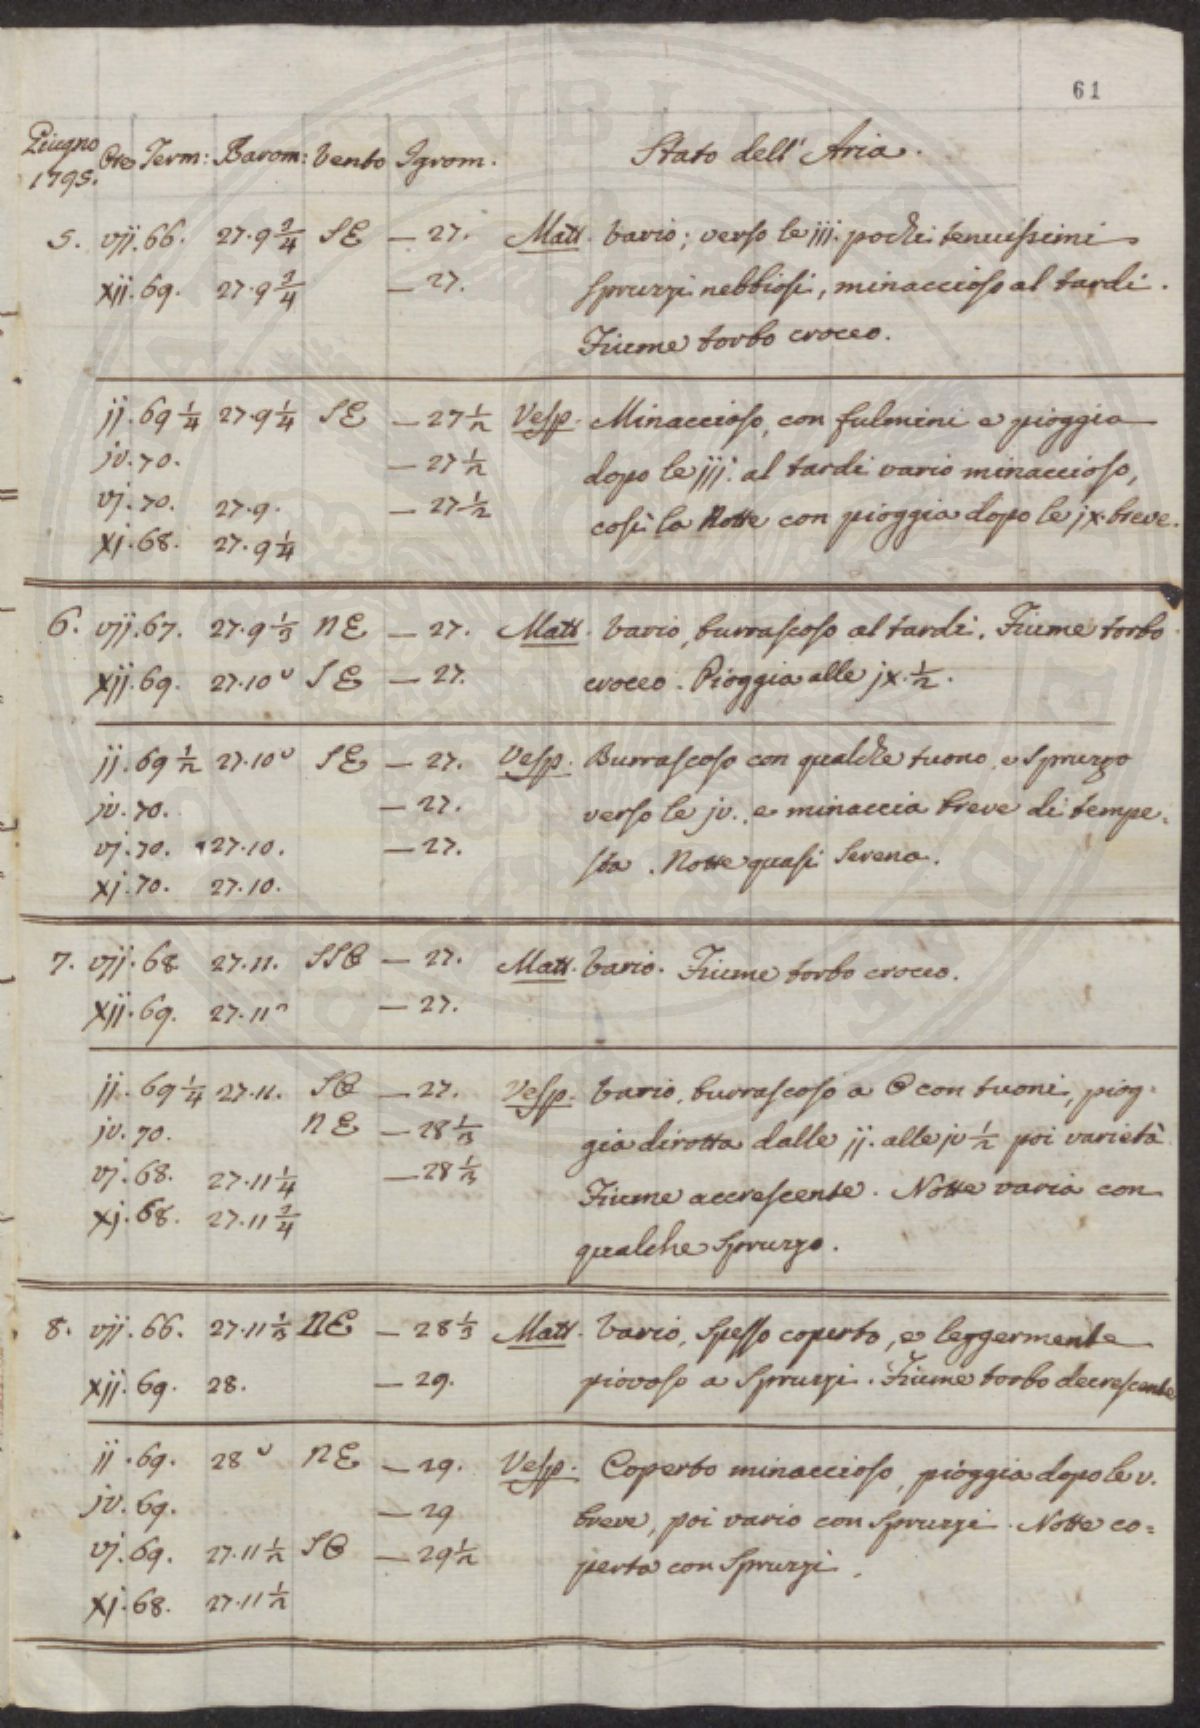 61
Giugno
1795. Ore Term: Barom: Vento Igrom. Stato dell'Aria.
5. vij. 66. 27.9 3/4 SE — 27. Matt. Vario; verso le iij. pochi tenuissimi
xij. 69. 27.9 3/4 — 27. spruzzi nebbiosi, minaccioso al tardi.
Fiume torbo croceo.
ij. 69 1/4 27.9 1/4 SE — 27 1/2 Vesp. Minaccioso, con fulmini e pioggia
iv. 70. — 27 1/2 dopo le iij. al tardi vario minaccioso,
vj. 70. 27.9. — 27 1/2 così la Notte con pioggia dopo le jx. breve.
xj. 68. 27.9 1/4
6. vij. 67. 27.9 1/3 NE — 27. Matt. Vario, burrascoso al tardi. Fiume torbo
xij. 69. 27.10 SE — 27. croceo. Pioggia alle jx. 1/2.
ij. 69 1/2 27.10 SE — 27. Vesp. Burrascoso con qualche tuono, e spruzzo
jv. 70. — 27. verso le jv., e minaccia breve di tempe=
vj. 70. 27.10. — 27. sta. Notte quasi Serena.
xj. 70. 27.10.
7. vij. 68 27.11. SSO — 27. Matt. Vario. Fiume torbo croceo.
xij. 69. 27.11 — 27.
ij. 69 1/4 27.11. SO — 27. Vesp. Vario, burrascoso a O con tuoni, piog=
jv. 70. NE — 28 1/3 gia dirotta dalle ij. alle jv 1/2 poi varietà
vj. 68. 27.11 1/4 — 28 1/3 Fiume accrescente. Notte varia con
xj. 68. 27.11 3/4 qualche spruzzo.
8. vij. 66. 27.11 2/3 NE — 28 1/3 Matt. Vario, spesso coperto, e leggermente
xij. 69. 28. — 29. piovoso a spruzzi. Fiume torbo decrescente
ij. 69. 28 NE — 29. Vesp. Coperto minaccioso, pioggia dopo le v.
jv. 69. — 29 breve, poi vario con spruzzi. Notte co=
vj. 69. 27.11 1/2 SO — 29 1/2 perta con spruzzi.
xj. 68. 27.11 1/2